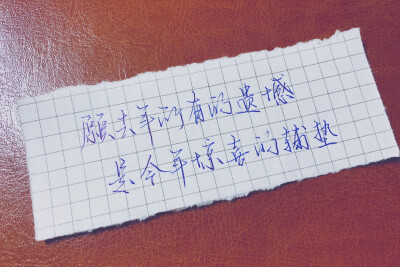 愿去年所有的遗憾
是今年惊喜的铺垫